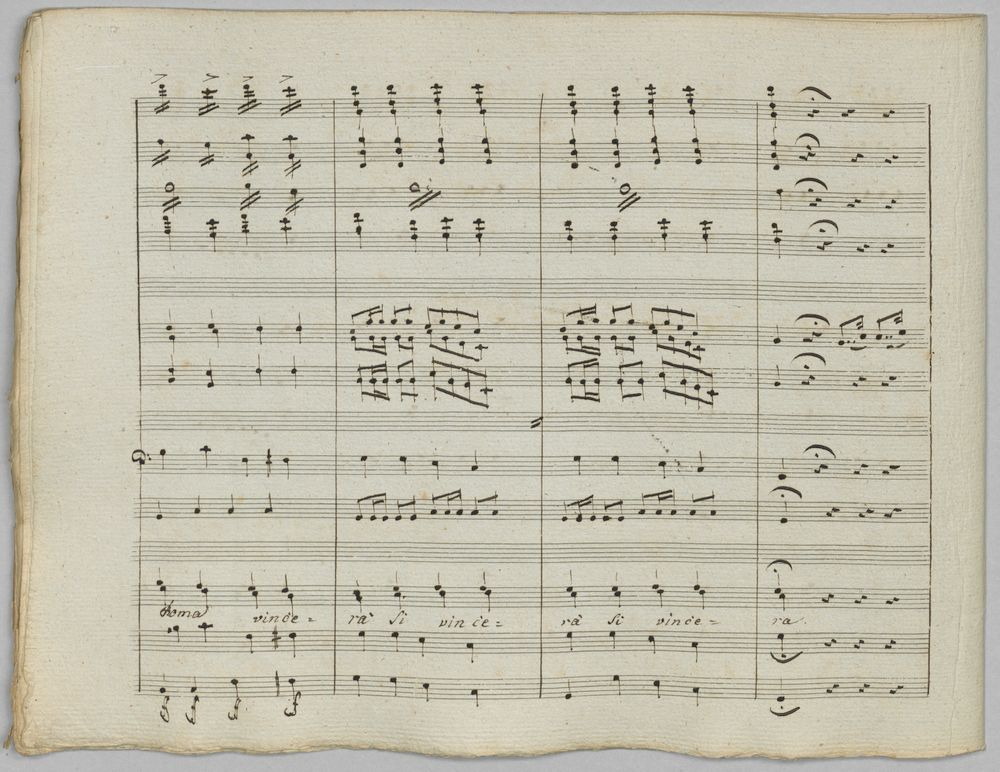 Roma vince= rà Si vin ce= rà Si vince= ra.